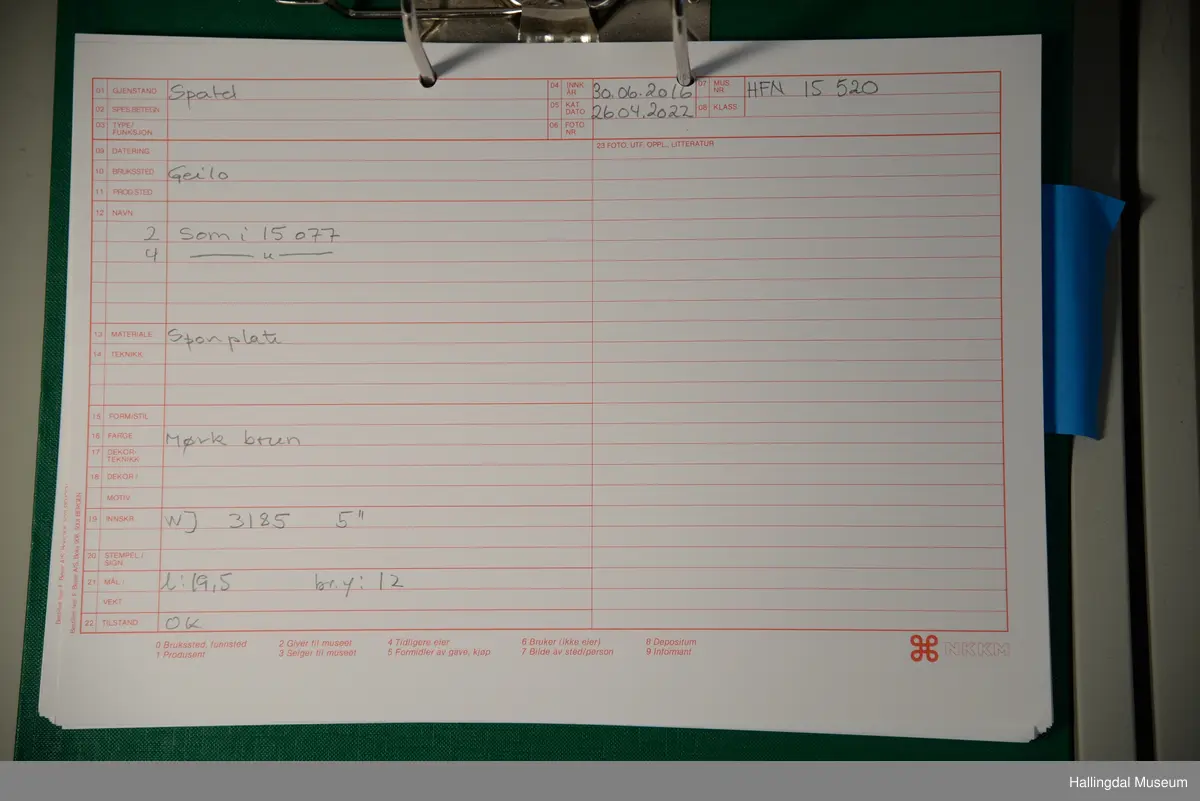 01 GJENSTAND Spatel 04 INNK ÅR 30.06.2016 07 MUS NR HFN 15 520
02 SPES.BETEGN. 05 KAT. DATO 26.04.2022 08 KLASS
03 TYPE/ FUNKSJON 06 FOTO NR
09 DATERING 23 FOTO, UTF. OPPL., LITTERATUR
10 BRUKSSTED Geilo
11 PROD.STED
12 NAVN
2 Som i 15 077
4 —— " ——
13 MATERIALE Sponplate
14 TEKNIKK
15 FORM/STIL
16 FARGE Mørk brun
17 DEKOR- TEKNIKK
18 DEKOR /
MOTIV
19 INNSKR WJ 3185 5"
20 STEMPEL / SIGN.
21 MÅL : l: 19,5 br.y: 12
VEKT
22 TILSTAND OK
0 Brukssted, funnsted 2 Giver til museet 4 Tidligere eier 6 Bruker (ikke eier) 8 Depositum
1 Produsent 3 Selger til museet 5 Formidler av gave, kjøp 7 Bilde av sted/person 9 Informant
NKKM
Hallingdal Museum